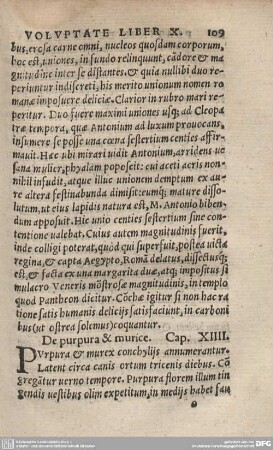 VOLVPTATE LIBER X. 109
bus, erosa carne omni, nucleos quosdam corporum,
hoc est, uniones, in fundo relinquunt, cādore & ma
gnitudine inter se distantes, & quia nullibi duo re
periuntur indiscreti, his merito unionum nomen ro
manæ imposuere deliciæ. Clarior in rubro mari re
peritur. Duo fuere maximi uniones usq; ad Cleopa
træ tempora, quæ Antonium ad luxum prouocans,
insumere se posse una cœna sestertium centies affir
mauit. Hæc ubi mirari uidit Antonium, arridens ue
sana mulier, phyalam poposcit: cui aceti acris non-
nihil infudit, atque illuc unionem demptum ex au-
re altera festinabunda dimisit eumq; mature disso-
lutum, ut eius lapidis natura est, M. Antonio biben-
dum apposuit. Hic unio centies sestertium sine con-
tentione ualebat. Cuius autem magnitudinem fuerit,
inde colligi poterat, quòd qui superfuit, postea uicta
regina, & capta Aegypto, Romā delatus, dissectusq;
est, & facta ex una margarita duæ, atq; impositus si
mulacro Veneris mōstrosæ magnitudinis, in templo
quod Pantheon dicitur. Cōchæ igitur si non hac ra
tione satis humanis delicijs satisfaciunt, in carboni
bus (ut ostrea solemus) coquantur.
De purpura & murice. Cap. XIIII.
PVrpura & murex conchylijs annumerantur.
Latent circa canis ortum tricenis diebus. Cō
gregātur uerno tempore. Purpura florem illum tin
gendis uestibus olim expetitum, in medijs habet fau